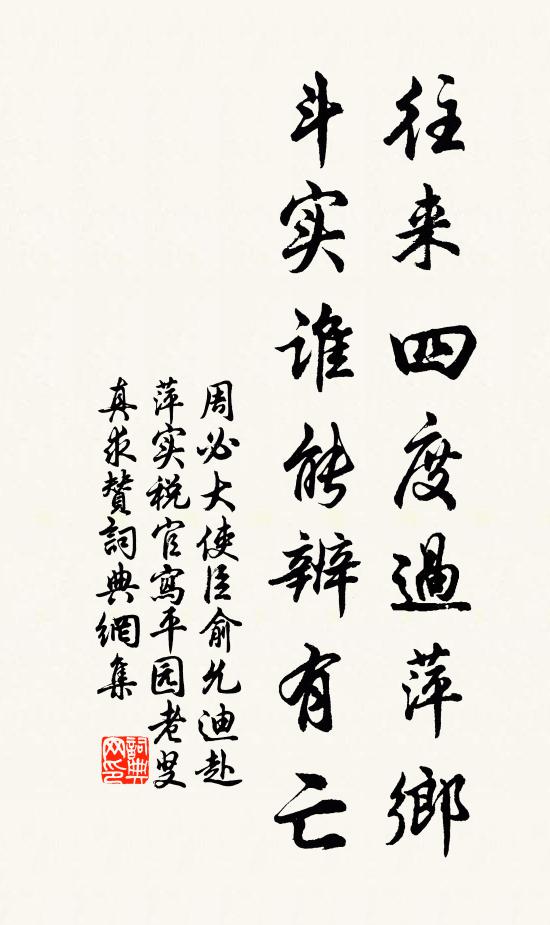 往来四度過萍鄉
斗实谁能辨有亡
周必大使臣俞允迪赴
萍实税官寫平园老叟
真求賛詞典網集
詞典网印